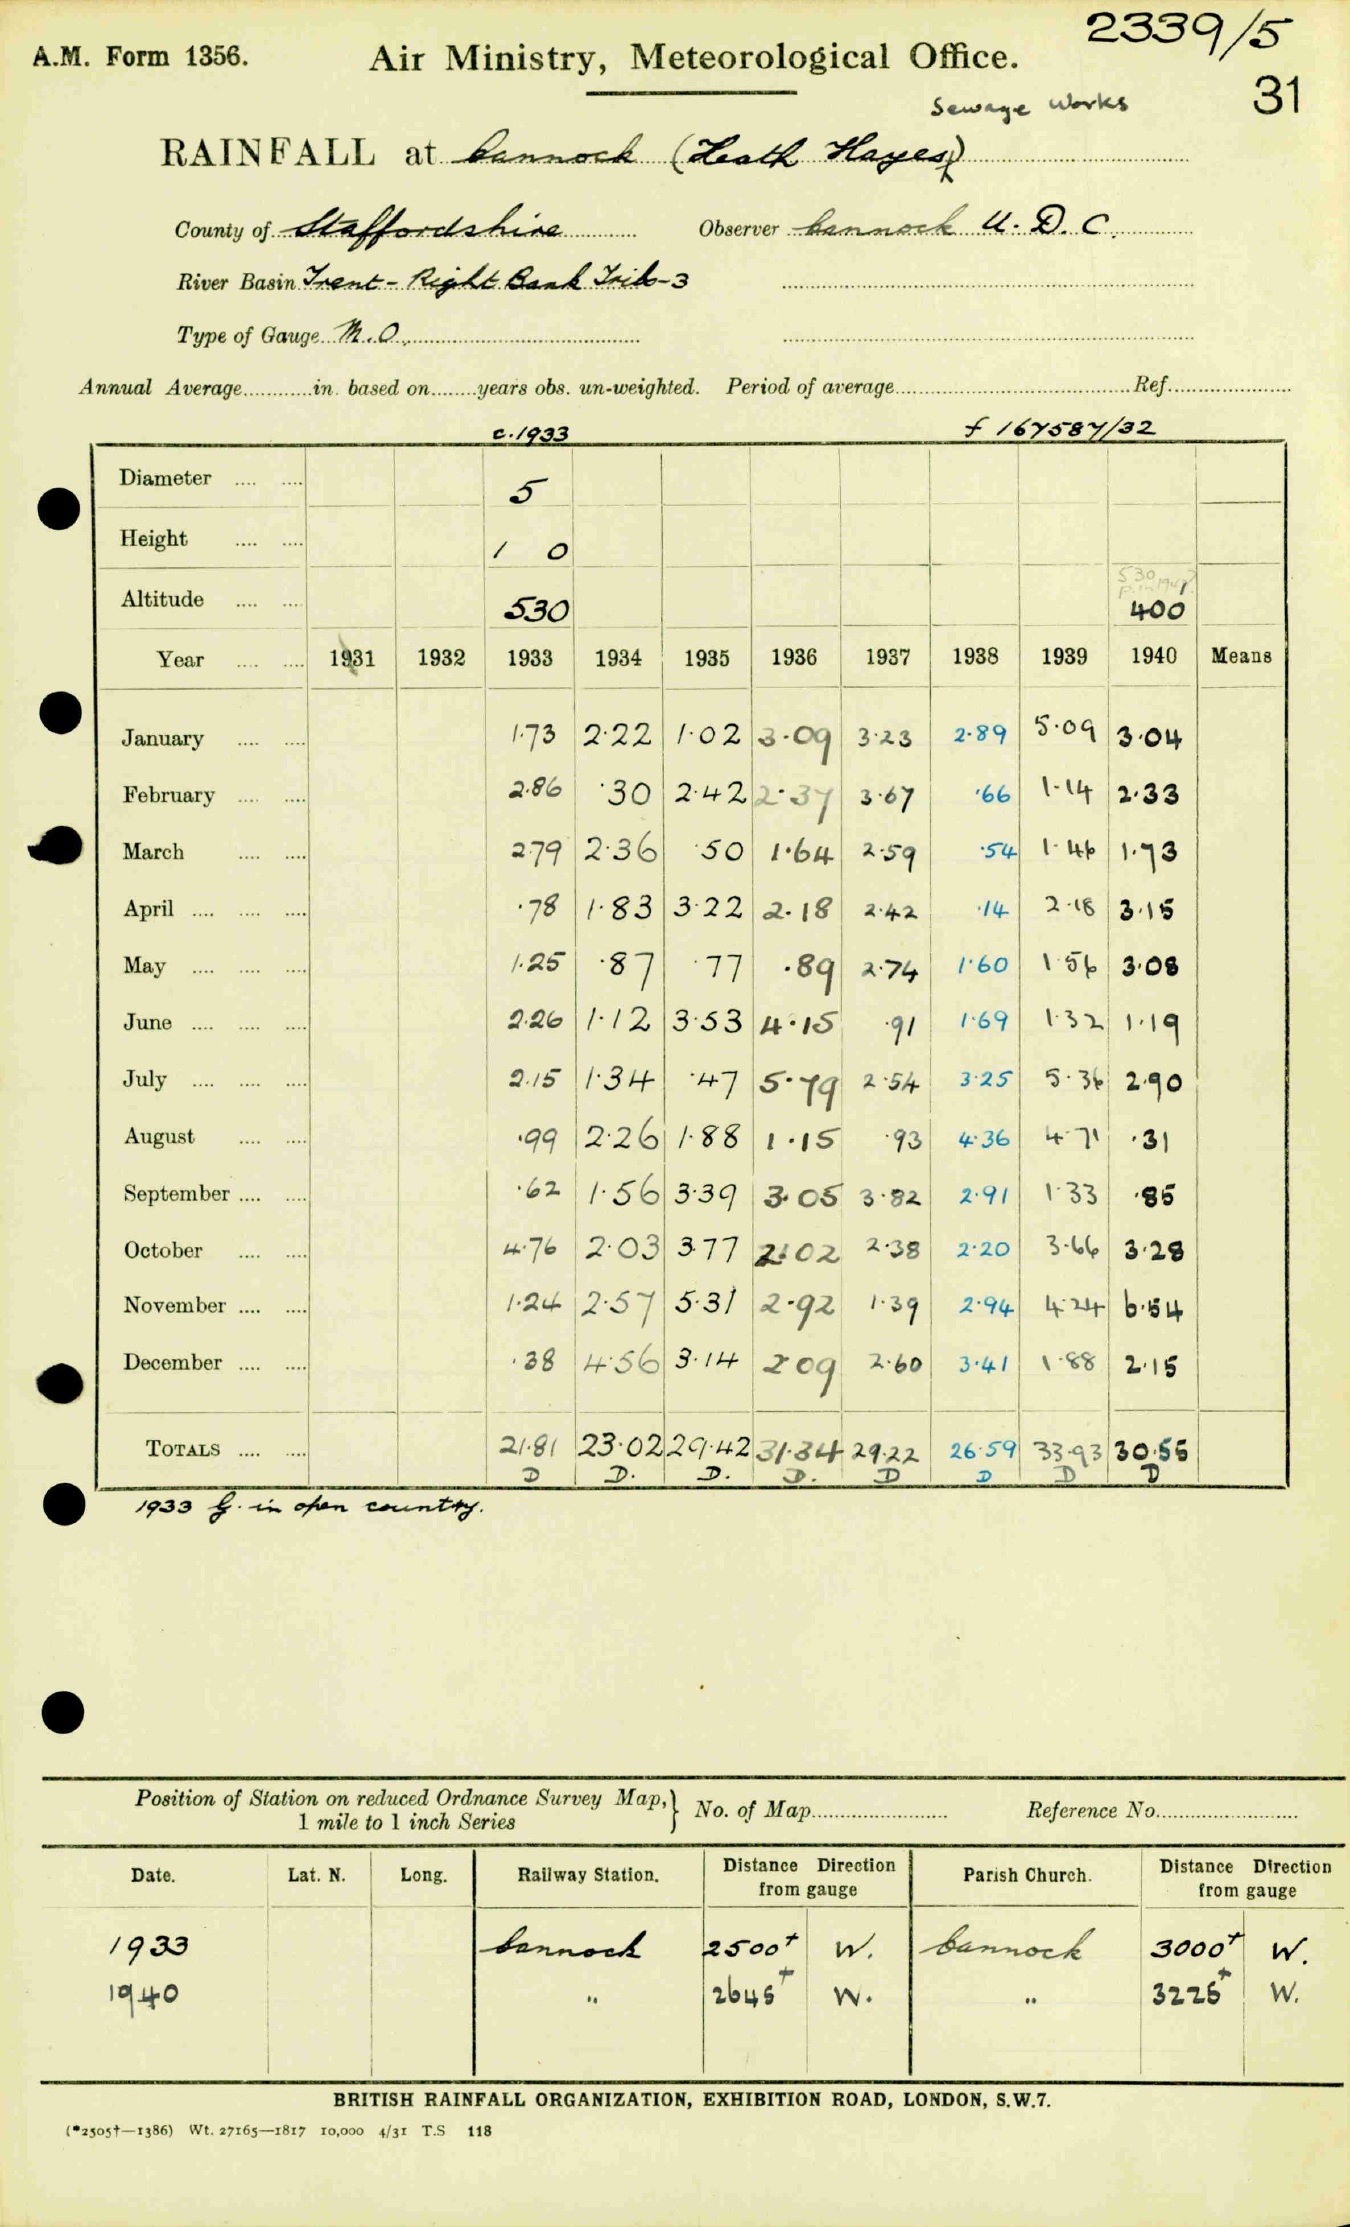 2339/5
A.M. Form 1356. Air Ministry, Meteorological Office.
31
Sewage Works
RAINFALL at Cannock (Heath Hayes)
County of Staffordshire Observer Cannock U.D.C.
River Basin Trent - Right Bank Tribs-3
Type of Gauge M.O.
Annual Average in. based on years obs. un-weighted. Period of average Ref
c.1933 f 167587/32
Diameter 5
Height 1 0
530
Altitude 530 400
Year 1931 1932 1933 1934 1935 1936 1937 1938 1939 1940 Means
January 1.73 2.22 1.02 3.09 3.23 2.89 5.09 3.04
February 2.86 .30 2.42 2.37 3.67 .66 1.14 2.33
March 2.79 2.36 .50 1.64 2.59 .54 1.46 1.73
April .78 1.83 3.22 2.18 2.42 .14 2.18 3.15
May 1.25 .87 .77 .89 2.74 1.60 1.56 3.08
June 2.26 1.12 3.53 4.15 .91 1.69 1.32 1.19
July 2.15 1.34 .47 5.79 2.54 3.25 5.36 2.90
August .99 2.26 1.88 1.15 .93 4.36 4.71 .31
September .62 1.56 3.39 3.05 3.82 2.91 1.33 .85
October 4.76 2.03 3.77 2.02 2.38 2.20 3.66 3.28
November 1.24 2.57 5.31 2.92 1.39 2.94 4.24 6.54
December .38 4.56 3.14 2.09 2.60 3.41 1.88 2.15
TOTALS 21.81 23.02 29.42 31.34 29.22 26.59 33.93 30.55
D D. D. D. D D D D
1933 G. in open country.
Position of Station on reduced Ordnance Survey Map,} No. of Map Reference No.
1 mile to 1 inch Series
Date. Lat. N. Long. Railway Station. Distance Direction from gauge Parish Church. Distance Direction from gauge
1933 Cannock 2500+ W. Cannock 3000+ W.
1940 " 2645+ W. " 3225+ W.
BRITISH RAINFALL ORGANIZATION, EXHIBITION ROAD, LONDON, S.W.7.
(*2505†—1386) Wt. 27165—1817 10,000 4/31 T.S 118